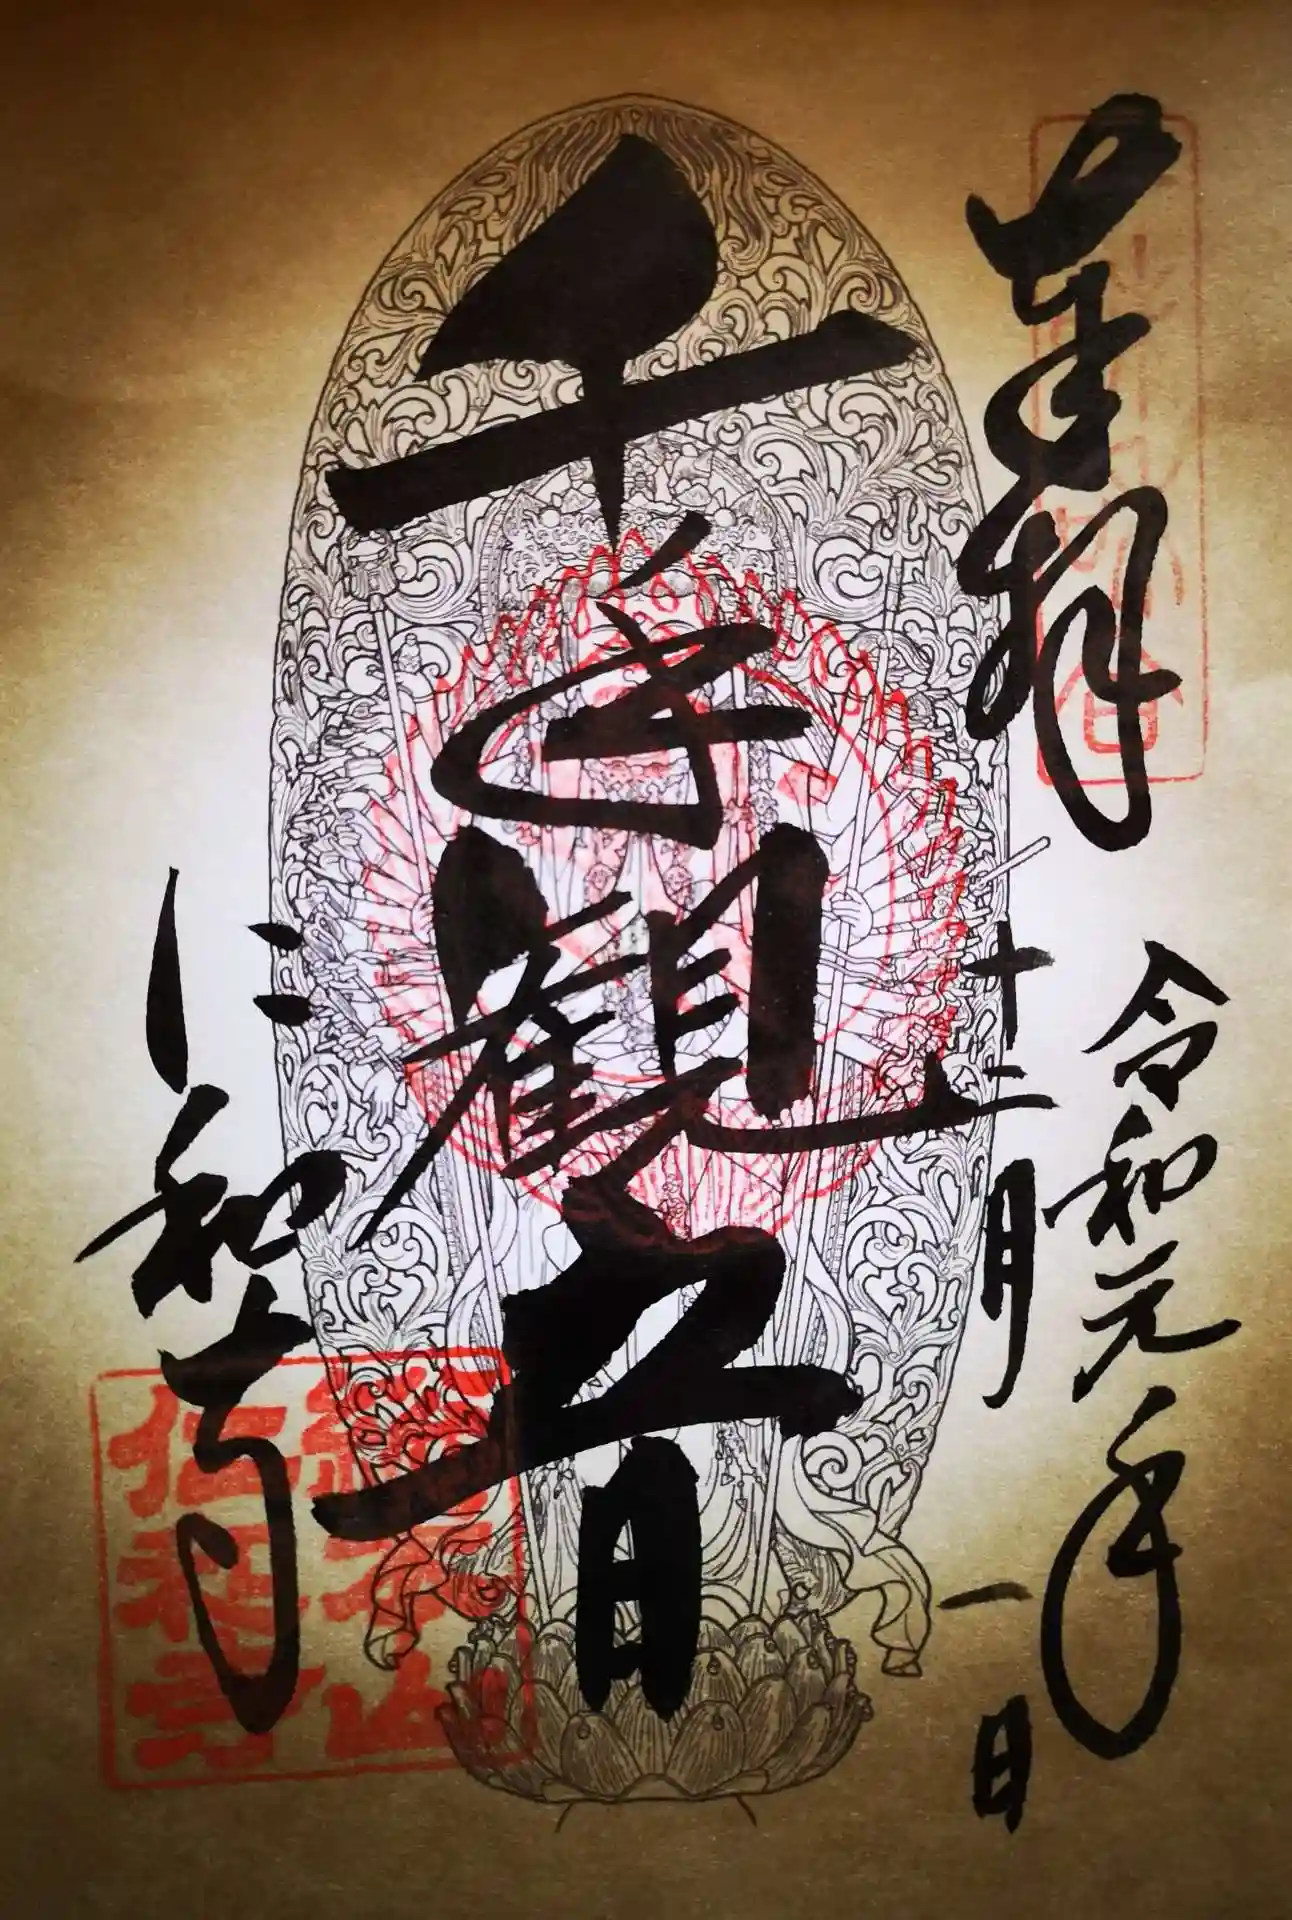 奉拝
令和元年
十二月一日
千手観音
仁和寺
総本山
仁和寺